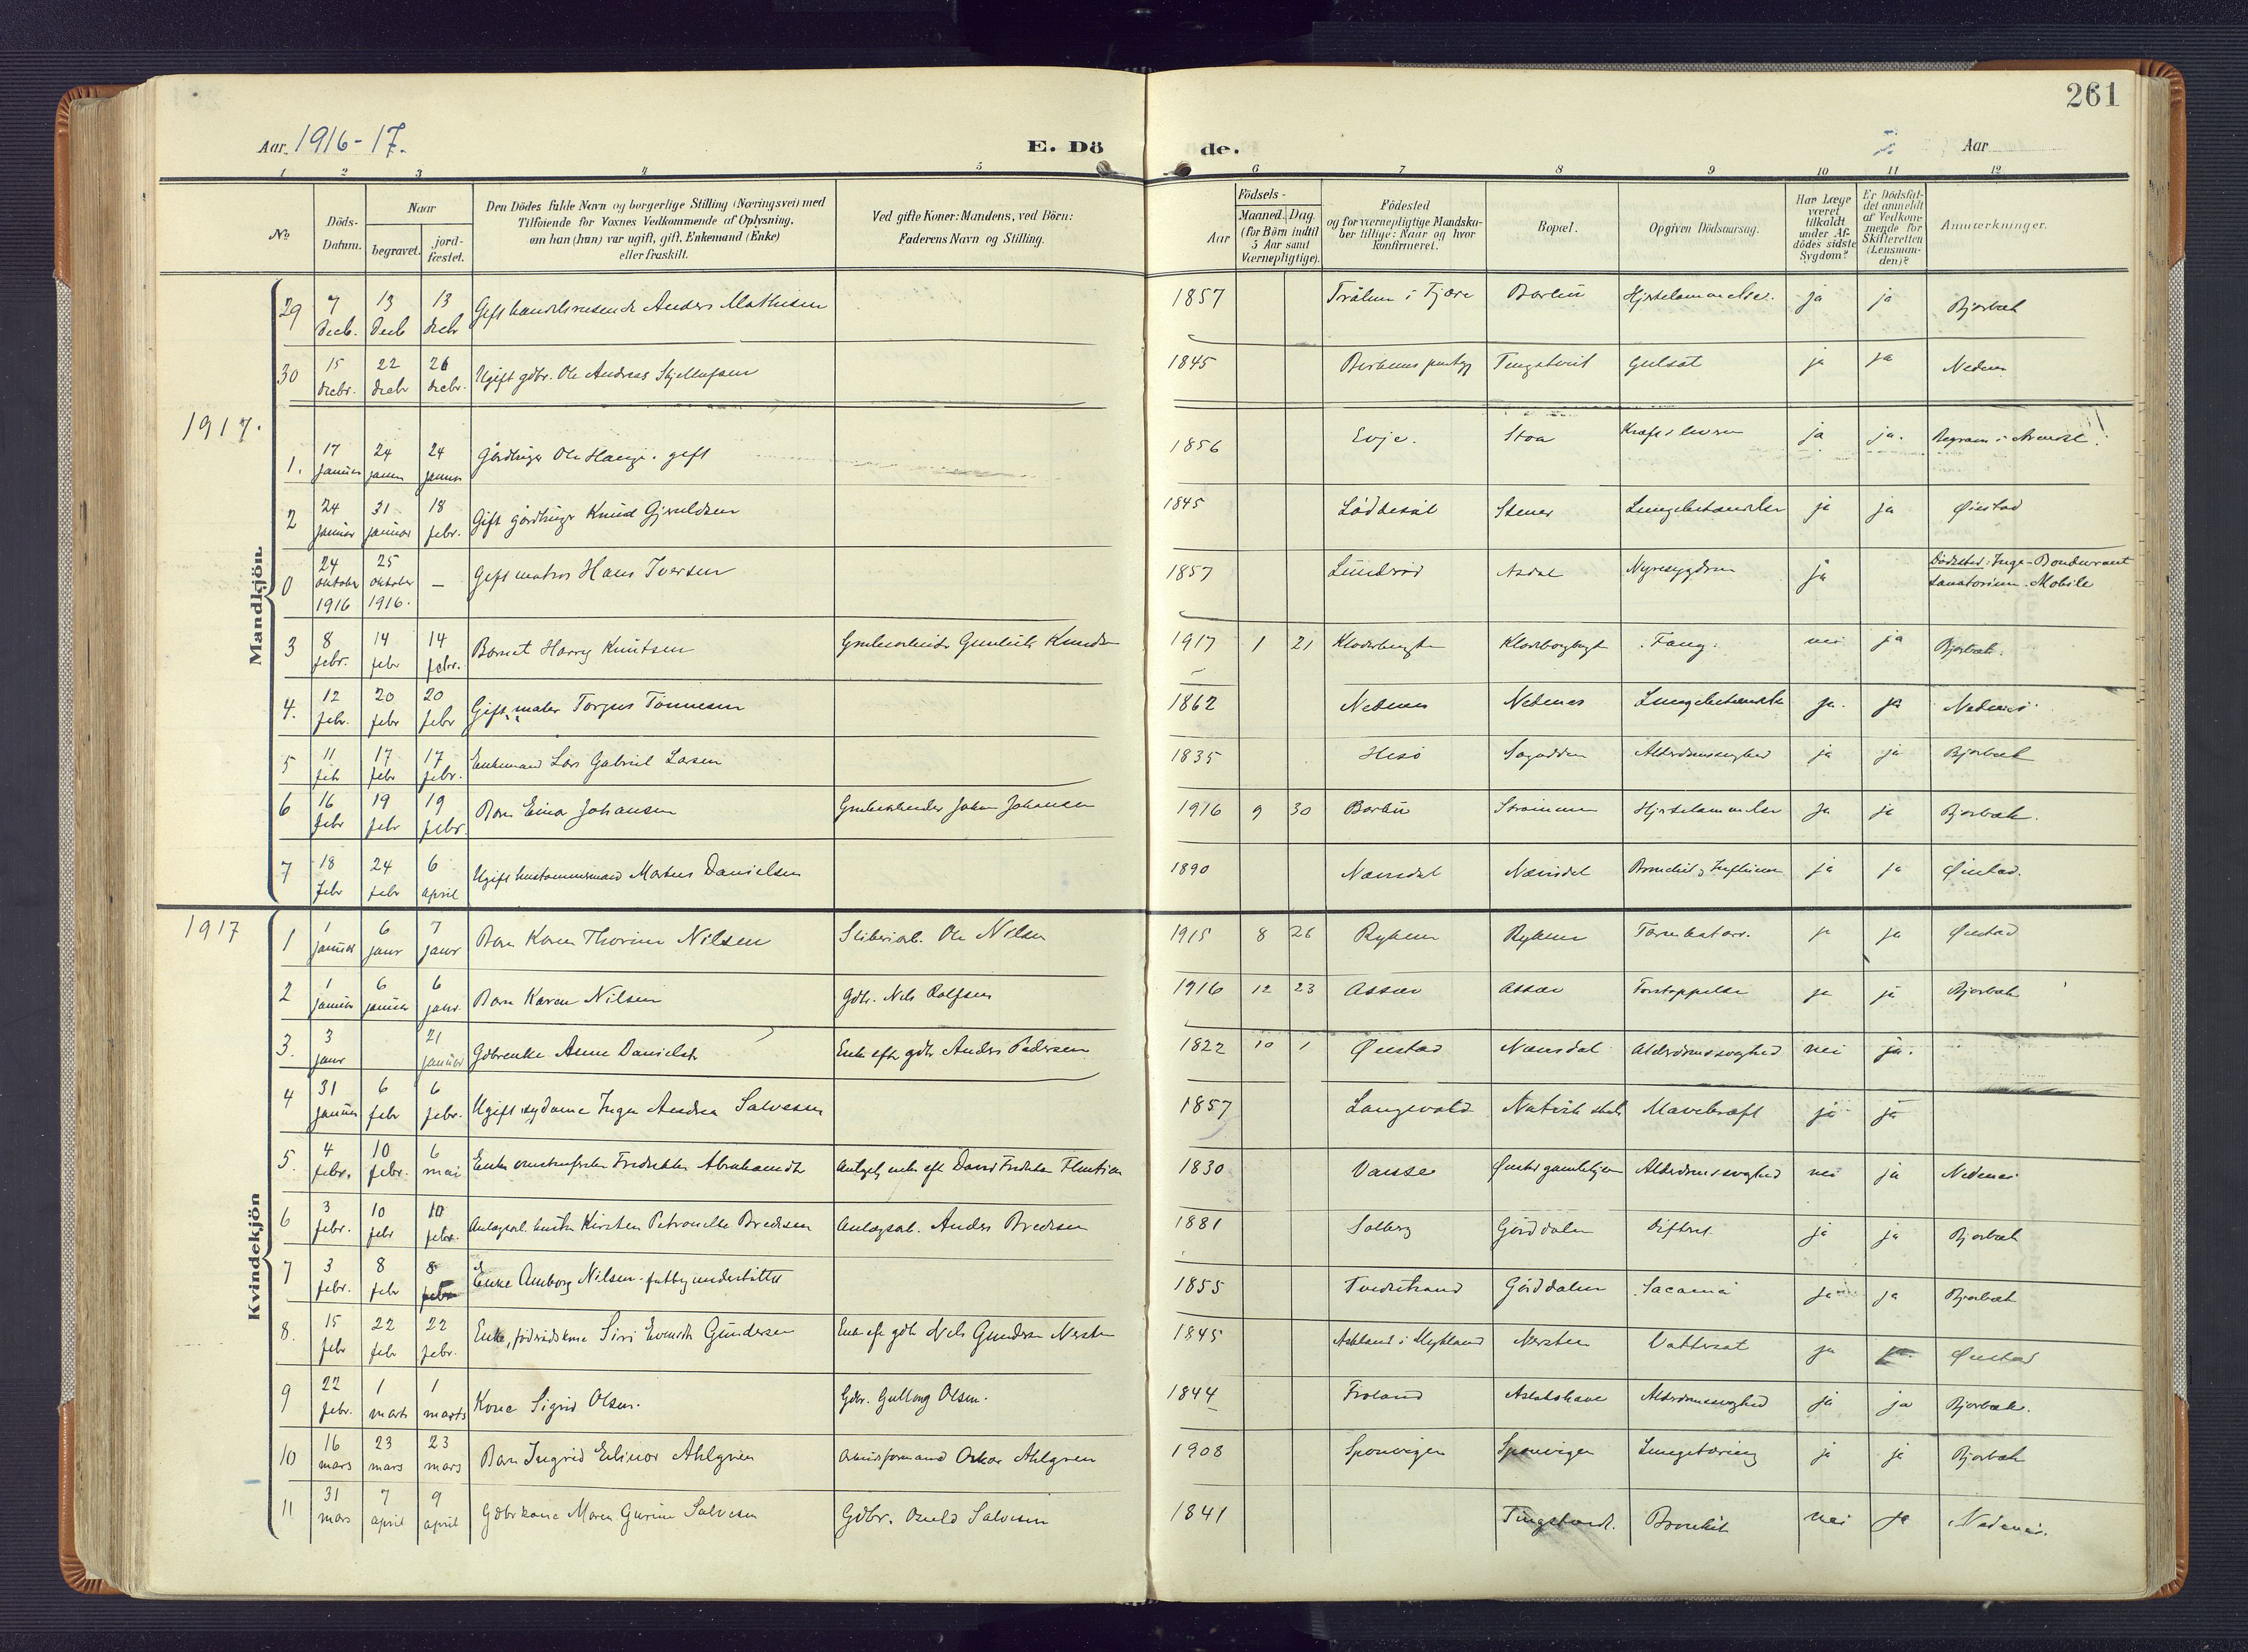 261
Aar 1916-17.
E. Dö
de.
Aar
1 2 3 4 5 6 7 8 9 10 11 12
No
Döds-Datum.
Naar
begravet.
jord-fæstet.
Den Dödes fulde Navn og borgerlige Stilling (Næringsvei) med
Tilföiende for Voxnes Vedkommende af Oplysning,
om han (hun) var ugift, gift, Enkemand (Enke)
eller fraskilt.
Ved gifte Koner: Mandens, ved Börn:
Faderens Navn og Stilling.
Födsels-
Aar
Maaned. Dag.
(for Börn indtil
5 Aar samt
Værnepligtige).
Födested
og for værnepligtige Mandska-
ber tillige: Naar og hvor
konfirmeret.
Bopæl.
Opgiven Dödsaarsag.
Har Læge
været
tilkaldt
under Af-
dödes sidste
Sygdom?
Er Dödsfal-
det anmeldt
af Vedkom-
mende for
Skifteretten
(Lensman-
den)?
Anmærkninger.
Mandkjön.
29 7 decb. 13 Decb 13 decbr Gift handelsreisende Anders Mathisen 1857 i Fjære Barbu ja ja Bjorbæk
30 15 decbr. 22 decbr 26 decbr. Ugift gdbr. Ole Andreas 1845 Tingstveit Gulsot ja ja Nedenes
1917.
1. 17 januar 24 januar 24 januar Gårdbruger Ole Hauge. gift 1856 Evje. Stoa Kræft i leveren ja ja. i Arendal
2 24 januar 31 januar 18 febr. Gift gårdbruger Knud Gjeruldsen 1845 Løddesøl Stener Lungebetændelse ja ja Øiestad
0 24 oktober 1916 25 oktober 1916. — Gift matros Hans Iversen 1857 Lindrød Asdal Nyresygdom ja Dødssted: Inge-Bondurant Sanatorium. Mobile
3 8 febr. 14 febr 14 febr. Barnet Harry Knutsen Grubearbeider 1917 1 21 nei ja Bjorbæk.
4. 12 febr. 20 febr 20 febr Gift maler Torjus Tønnesen 1862 Nedenes Nedenes Lungebetændelse ja. ja Nedenes
5 11 febr 17 febr 17 febr. Enkemand Lars Gabriel Larsen 1835 Hisø Alderdomssvaghed ja ja Bjorbæk
6 16 febr 19 febr 19 febr. Barn Einar Johansen Grubearbeider Johan Johansen 1916 9 30 Barbu Strømmen Hjertelammelse ja ja Bjorbæk.
7 18 febr 24 febr 6 april Ugift Martus Danielsen 1890 Næsdal Næsdal ja ja Øiestad.
1917
Kvindekjön
1 1 januar 6 janr 7 janr Barn Karen Thorine Nilsen Sliberiarb. Ole Nilsen 1915 8 26 Rykene Rykene Tarmkatarr. ja ja Øiestad
2 1 januar 6 januar 6 janr. Barn Karen Nilsen Gdbr. Nils Rolfsen 1916 12 23 Assæv Assæv Forstoppelse ja ja Bjorbæk
3. 3 janr 21 januar Gdbrenke Anne Danielsdtr Enke eftr gdbr Anders Pedersen 1822 10 1 Øiestad Næsdal Alderdomssvaghed nei ja.
4 31 januar 6 febr 6 febr. Ugift sydame Inga Andrea Salvesen 1857 Langevold Mavekræft ja ja
5. 4 febr. 10 febr. 6 mai Enke Fredrikke Abrahamdtr 1830 Vanse Alderdomssvaghed nei ja Nedenes
6 3 febr. 10 febr 10 febr. Anlægsarb. hustru Kirsten Petronelle Bredesen Anlægsarb. Anders Bredesen 1881 Solberg Gårddalen Difteri ja ja Bjorbæk
7 3 febr. 8 febr 8 febr Enke Amborg Nilsen - fattigunderstøttet 1855 Tvedestrand Gårddalen ja ja Bjorbæk
8. 15 febr 22 febr 22 febr. Enke, føderådskone Siri Evensdtr Gundersen Enke eftr gdbr Nils Gundersen Nersten 1845 i Mykland Nersten Vattersot ja Øiestad
9 22 febr. 1 marts 1 marts Kone Sigrid Olsen. Gdbr. Gullong Olsen. 1844 Froland Alderdomssvaghed ja ja Bjorbæk.
10 16 mars 23 mars 23 mars Barn Ingrid Elinor Ahlgren Arbeidsformand Oskar Ahlgren 1908 Sponvigen Sponvigen Lungetæring ja ja Bjorbæk
11 31 mars 7 april 9 april Gdbrkone Maren Gurine Salvesen Gdbr. Osuld Salvesen 1841 Tingstveit. Bronkit nei ja Nedenes.